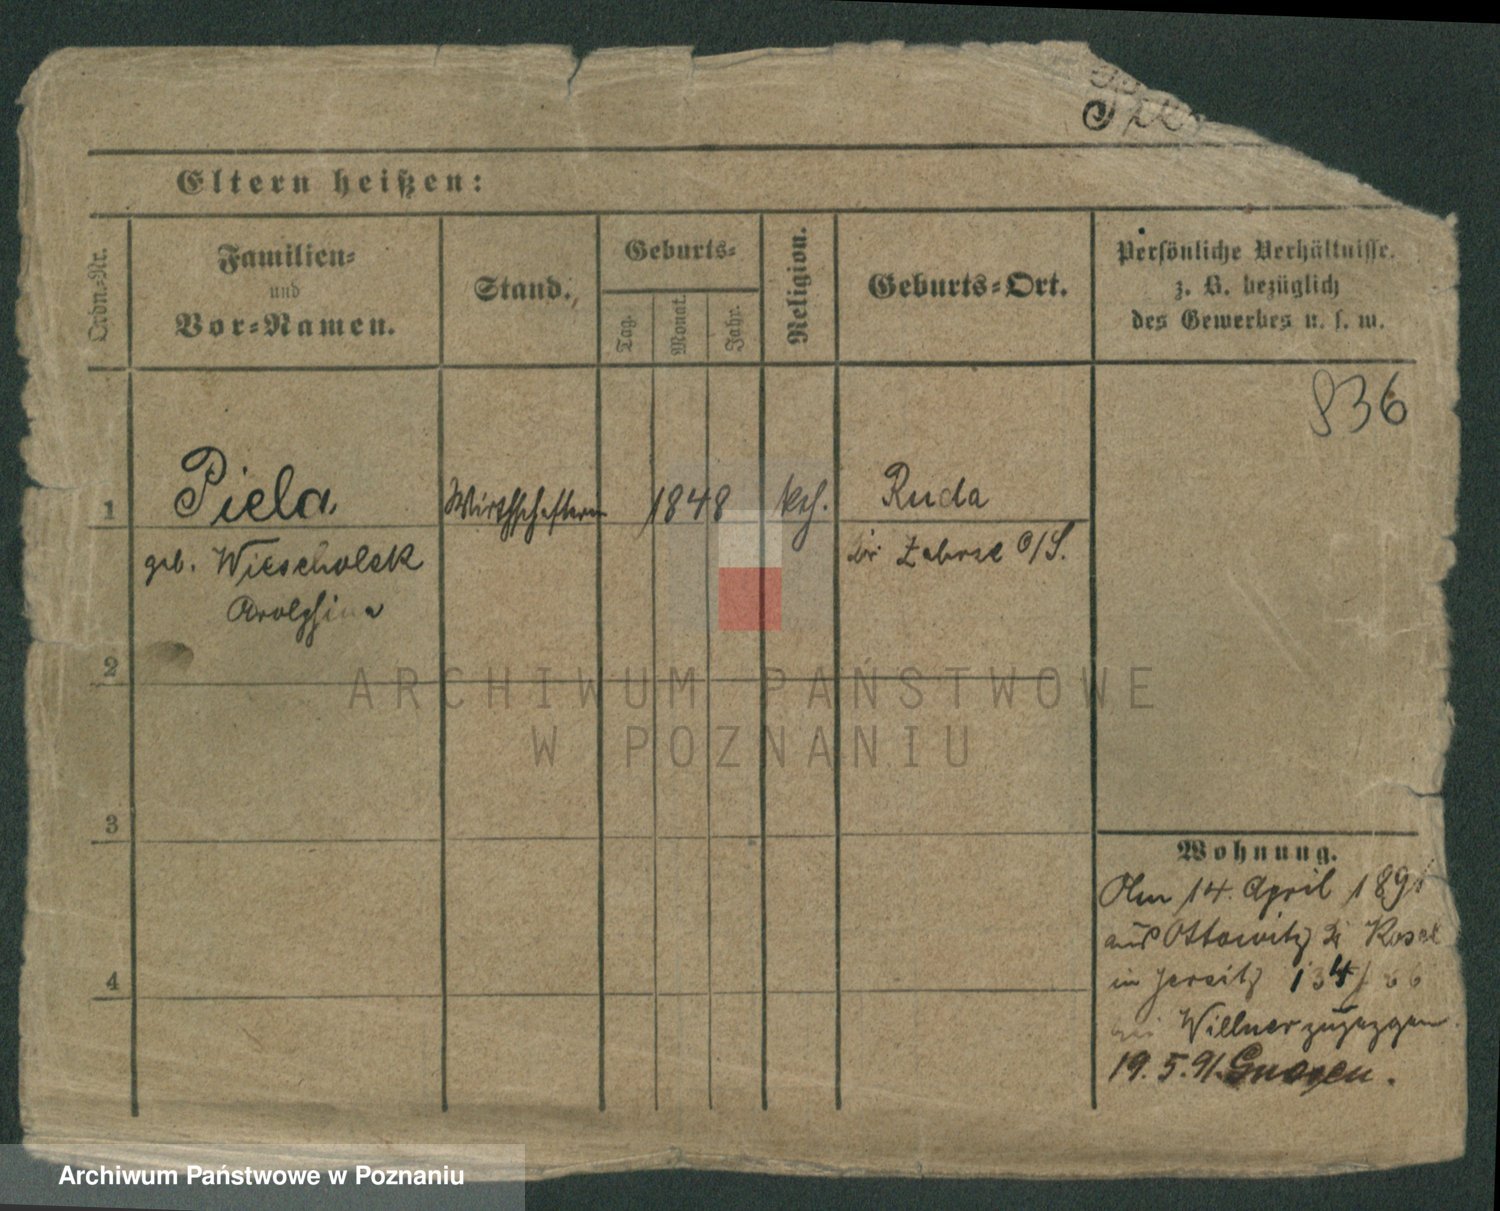 Pie
Eltern heißen:
Ordn.-Nr.
Familien-
und
Vor-Namen.
Stand.
Geburts-
Tag.
Monat.
Jahr.
Religion.
Geburts-Ort.
Persönliche Verhältnisse.
z. B. bezüglich
des Gewerbes u. s. w.
836
1
Piela
Wirthschafterin
1848
kth.
Ruda
geb. Wieschollek
bei Zabrze O/S.
2
ARCHIWUM PAŃSTWOWE
W POZNANIU
3
Wohnung.
Am 14. April 1891
aus Ottowitz Kosel
4
in Jersitz 134/66
bei Willner zugezogen.
19. 5. 91. Gnesen.
Archiwum Państwowe w Poznaniu